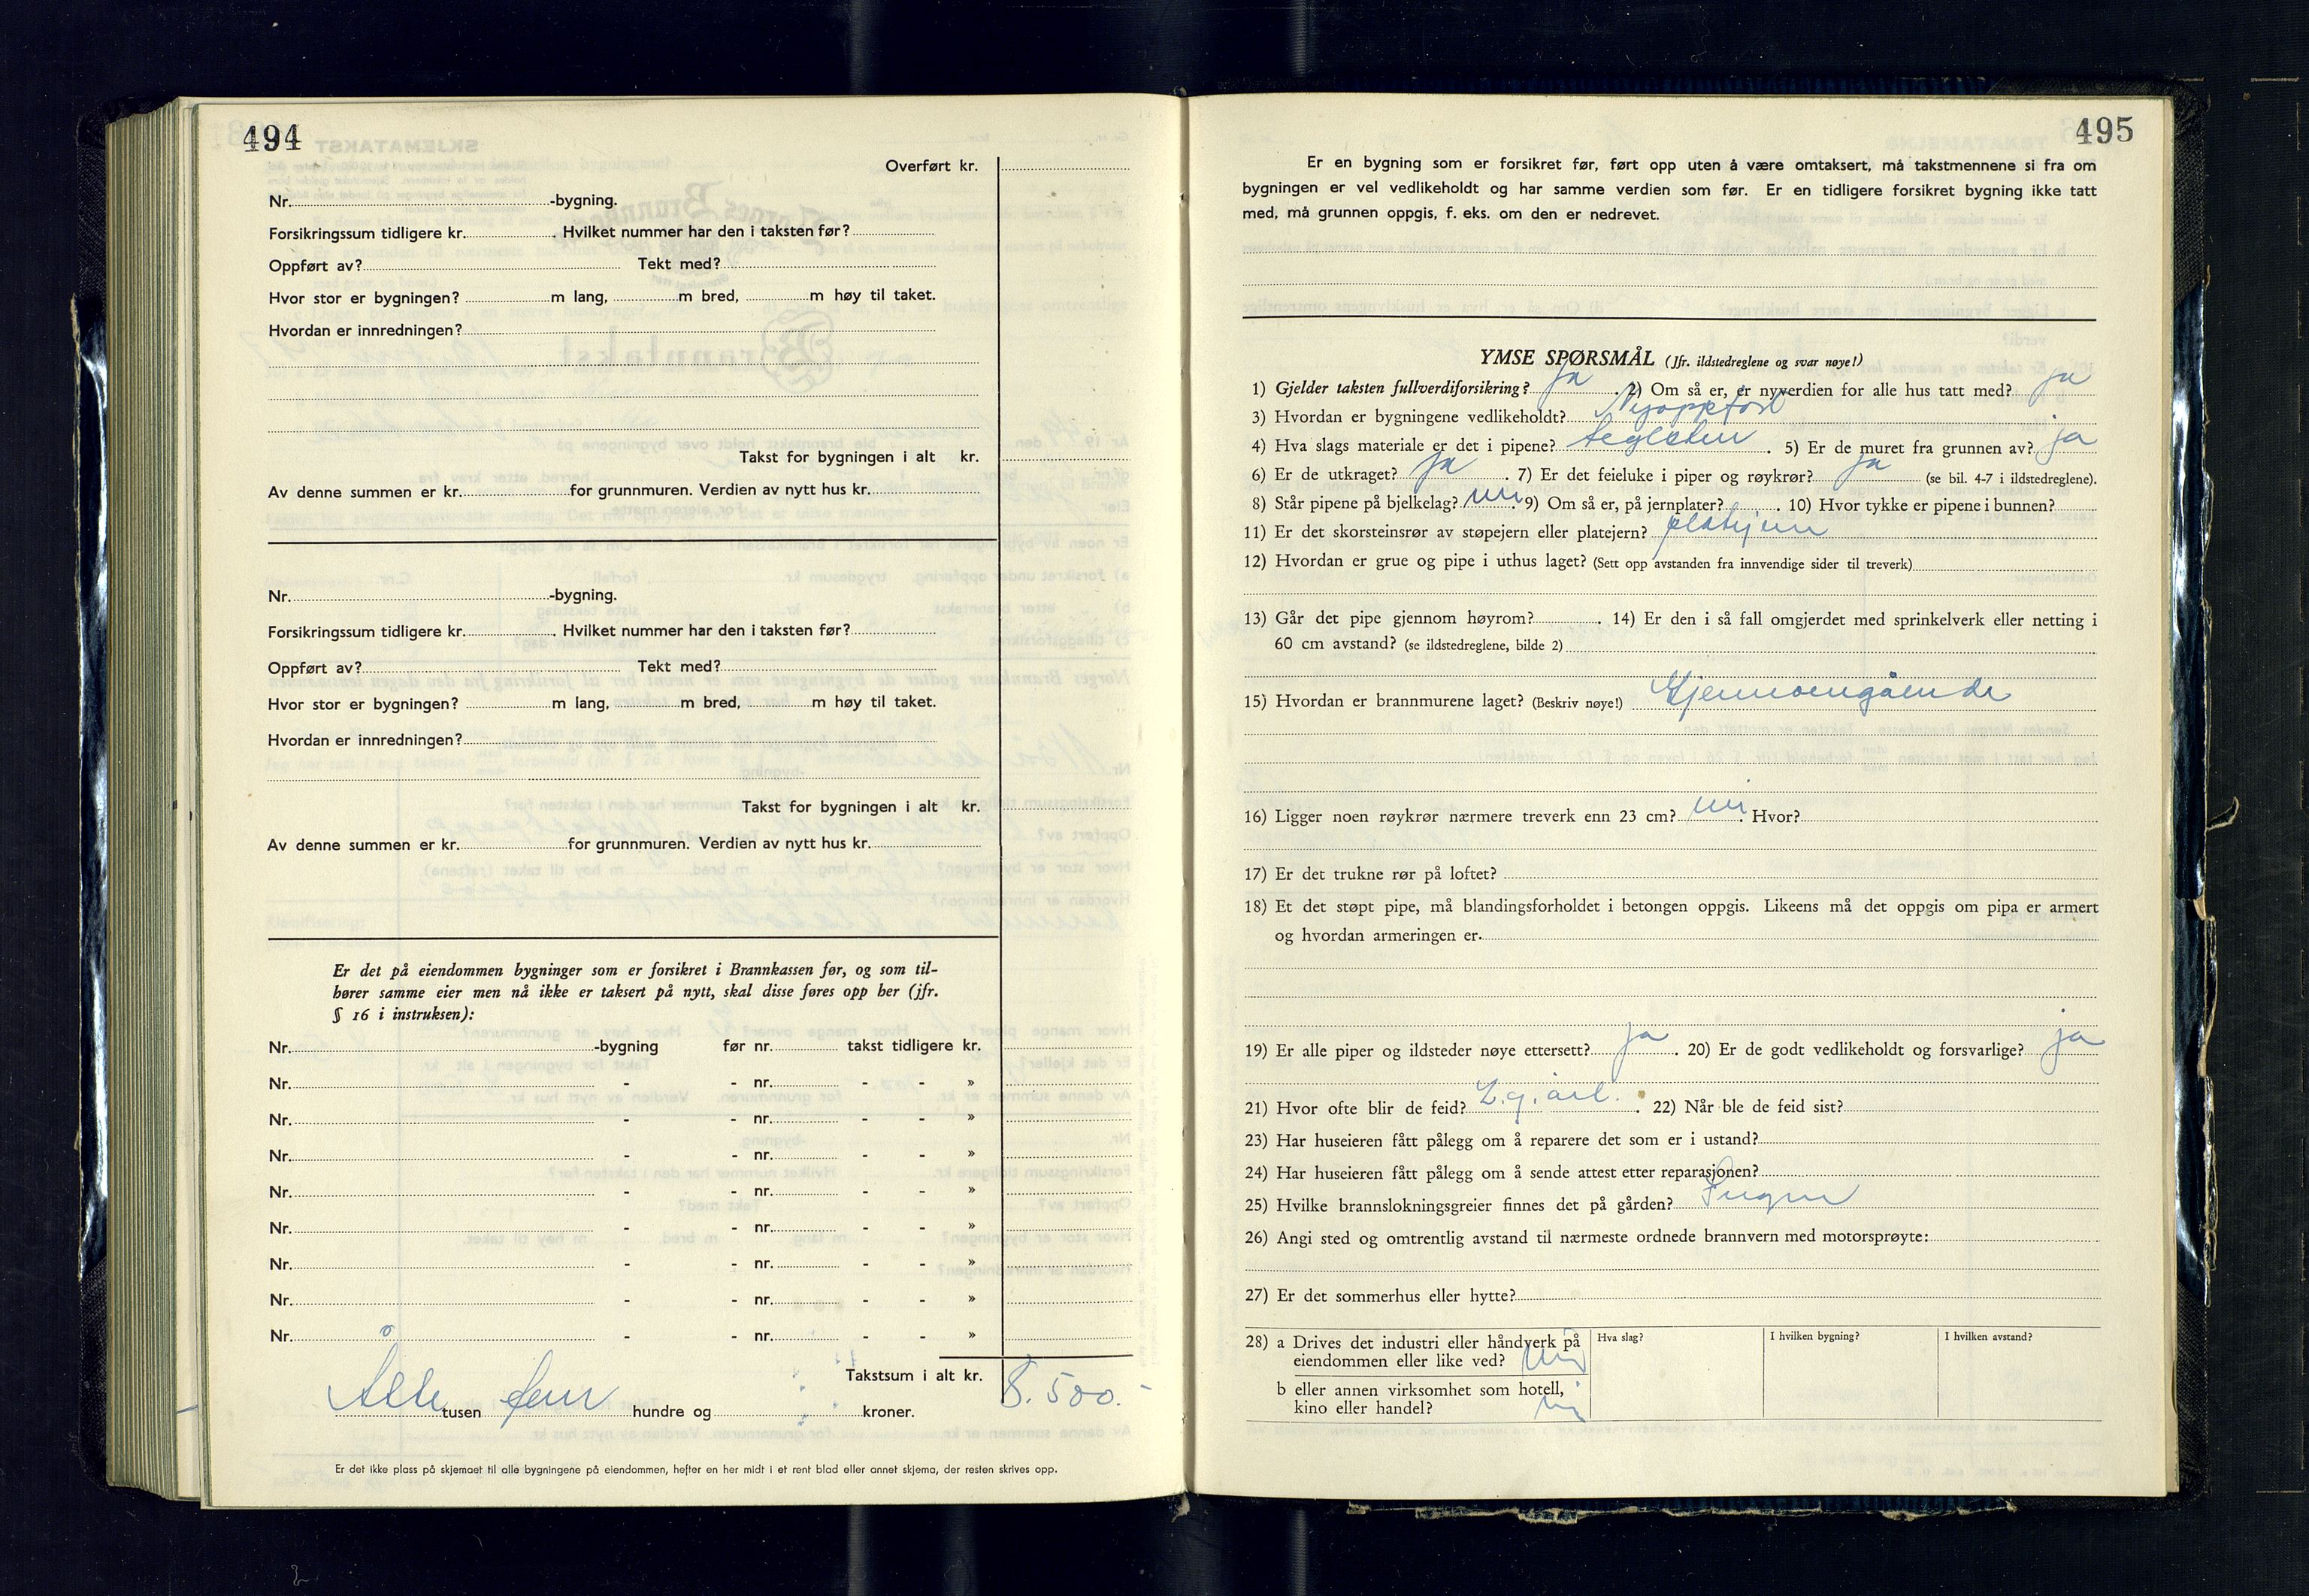 494
Overført kr.
Nr. -bygning.
Forsikringssum tidligere kr. . Hvilket nummer har den i taksten før?
Oppført av? Tekt med?
Hvor stor er bygningen? m lang, m bred, m høy til taket.
Hvordan er innredningen?
Takst for bygningen i alt kr.
Av denne summen er kr. for grunnmuren. Verdien av nytt hus kr.
Nr. -bygning.
Forsikringssum tidligere kr. . Hvilket nummer har den i taksten før?
Oppført av? Tekt med?
Hvor stor er bygningen? m lang, m bred, m høy til taket.
Hvordan er innredningen?
Takst for bygningen i alt kr.
Av denne summen er kr. for grunnmuren. Verdien av nytt hus kr.
Er det på eiendommen bygninger som er forsikret i Brannkassen før, og som til-
hører samme eier men nå ikke er taksert på nytt, skal disse føres opp her (jfr.
§ 16 i instruksen):
Nr. -bygning før nr. takst tidligere kr.
Nr. - - nr. - - »
Nr. - - nr. - - »
Nr. - - nr. - - »
Nr. - - nr. - - »
Nr. - - nr. - - »
Nr. - - nr. - - »
Nr. - - nr. - - »
Nr. - - nr. - - »
Takstsum i alt kr. 8.500.-
Åtte tusen fem hundre og kroner.
Er det ikke plass på skjemaet til alle bygningene på eiendommen, hefter en her midt i et rent blad eller annet skjema, der resten skrives opp.
495
Er en bygning som er forsikret før, ført opp uten å være omtaksert, må takstmennene si fra om
bygningen er vel vedlikeholdt og har samme verdien som før. Er en tidligere forsikret bygning ikke tatt
med, må grunnen oppgis, f. eks. om den er nedrevet.
YMSE SPØRSMÅL (Jfr. ildstedreglene og svar nøye!)
1) Gjelder taksten fullverdiforsikring? ja . 2) Om så er, er nyverdien for alle hus tatt med? ja
3) Hvordan er bygningene vedlikeholdt? Nyoppført
4) Hva slags materiale er det i pipene? teglsten . 5) Er de muret fra grunnen av? ja
6) Er de utkraget? ja . 7) Er det feieluke i piper og røykrør? ja (se bil. 4-7 i ildstedreglene).
8) Står pipene på bjelkelag? nei . 9) Om så er, på jernplater? . 10) Hvor tykke er pipene i bunnen?
11) Er det skorsteinsrør av støpejern eller platejern? platejern
12) Hvordan er grue og pipe i uthus laget? (Sett opp avstanden fra innvendige sider til treverk)
13) Går det pipe gjennom høyrom? . 14) Er den i så fall omgjerdet med sprinkelverk eller netting i
60 cm avstand? (se ildstedreglene, bilde 2)
15) Hvordan er brannmurene laget? (Beskriv nøye!) Gjennomgående
16) Ligger noen røykrør nærmere treverk enn 23 cm? nei . Hvor?
17) Er det trukne rør på loftet?
18) Et det støpt pipe, må blandingsforholdet i betongen oppgis. Likeens må det oppgis om pipa er armert
og hvordan armeringen er.
19) Er alle piper og ildsteder nøye ettersett? ja . 20) Er de godt vedlikeholdt og forsvarlige? ja
21) Hvor ofte blir de feid? 2.g. årl. . 22) Når ble de feid sist?
23) Har huseieren fått pålegg om å reparere det som er i ustand?
24) Har huseieren fått pålegg om å sende attest etter reparasjonen?
25) Hvilke brannslokningsgreier finnes det på gården? Ingen
26) Angi sted og omtrentlig avstand til nærmeste ordnede brannvern med motorsprøyte:
27) Er det sommerhus eller hytte?
28) a Drives det industri eller håndverk på Hva slag? I hvilken bygning? I hvilken avstand?
eiendommen eller like ved? nei
b eller annen virksomhet som hotell,
kino eller handel? nei